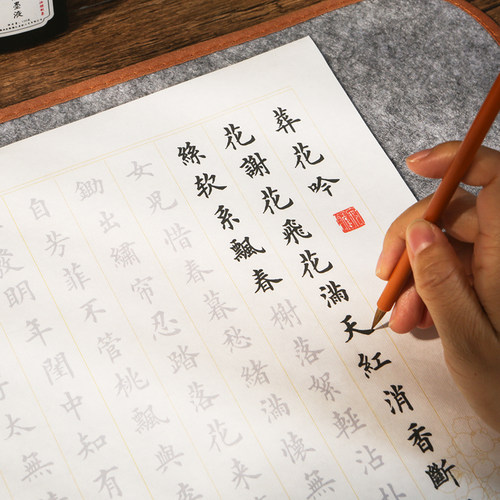 墨液
葬花吟
花謝花飛花滿天紅消香斷
絲軟系飄春榭落絮輕沾
女兒惜春暮愁緒滿懷無
鋤出繡帘忍踏落花來
自芳菲不管桃飄與
發明年閨中知有
太無